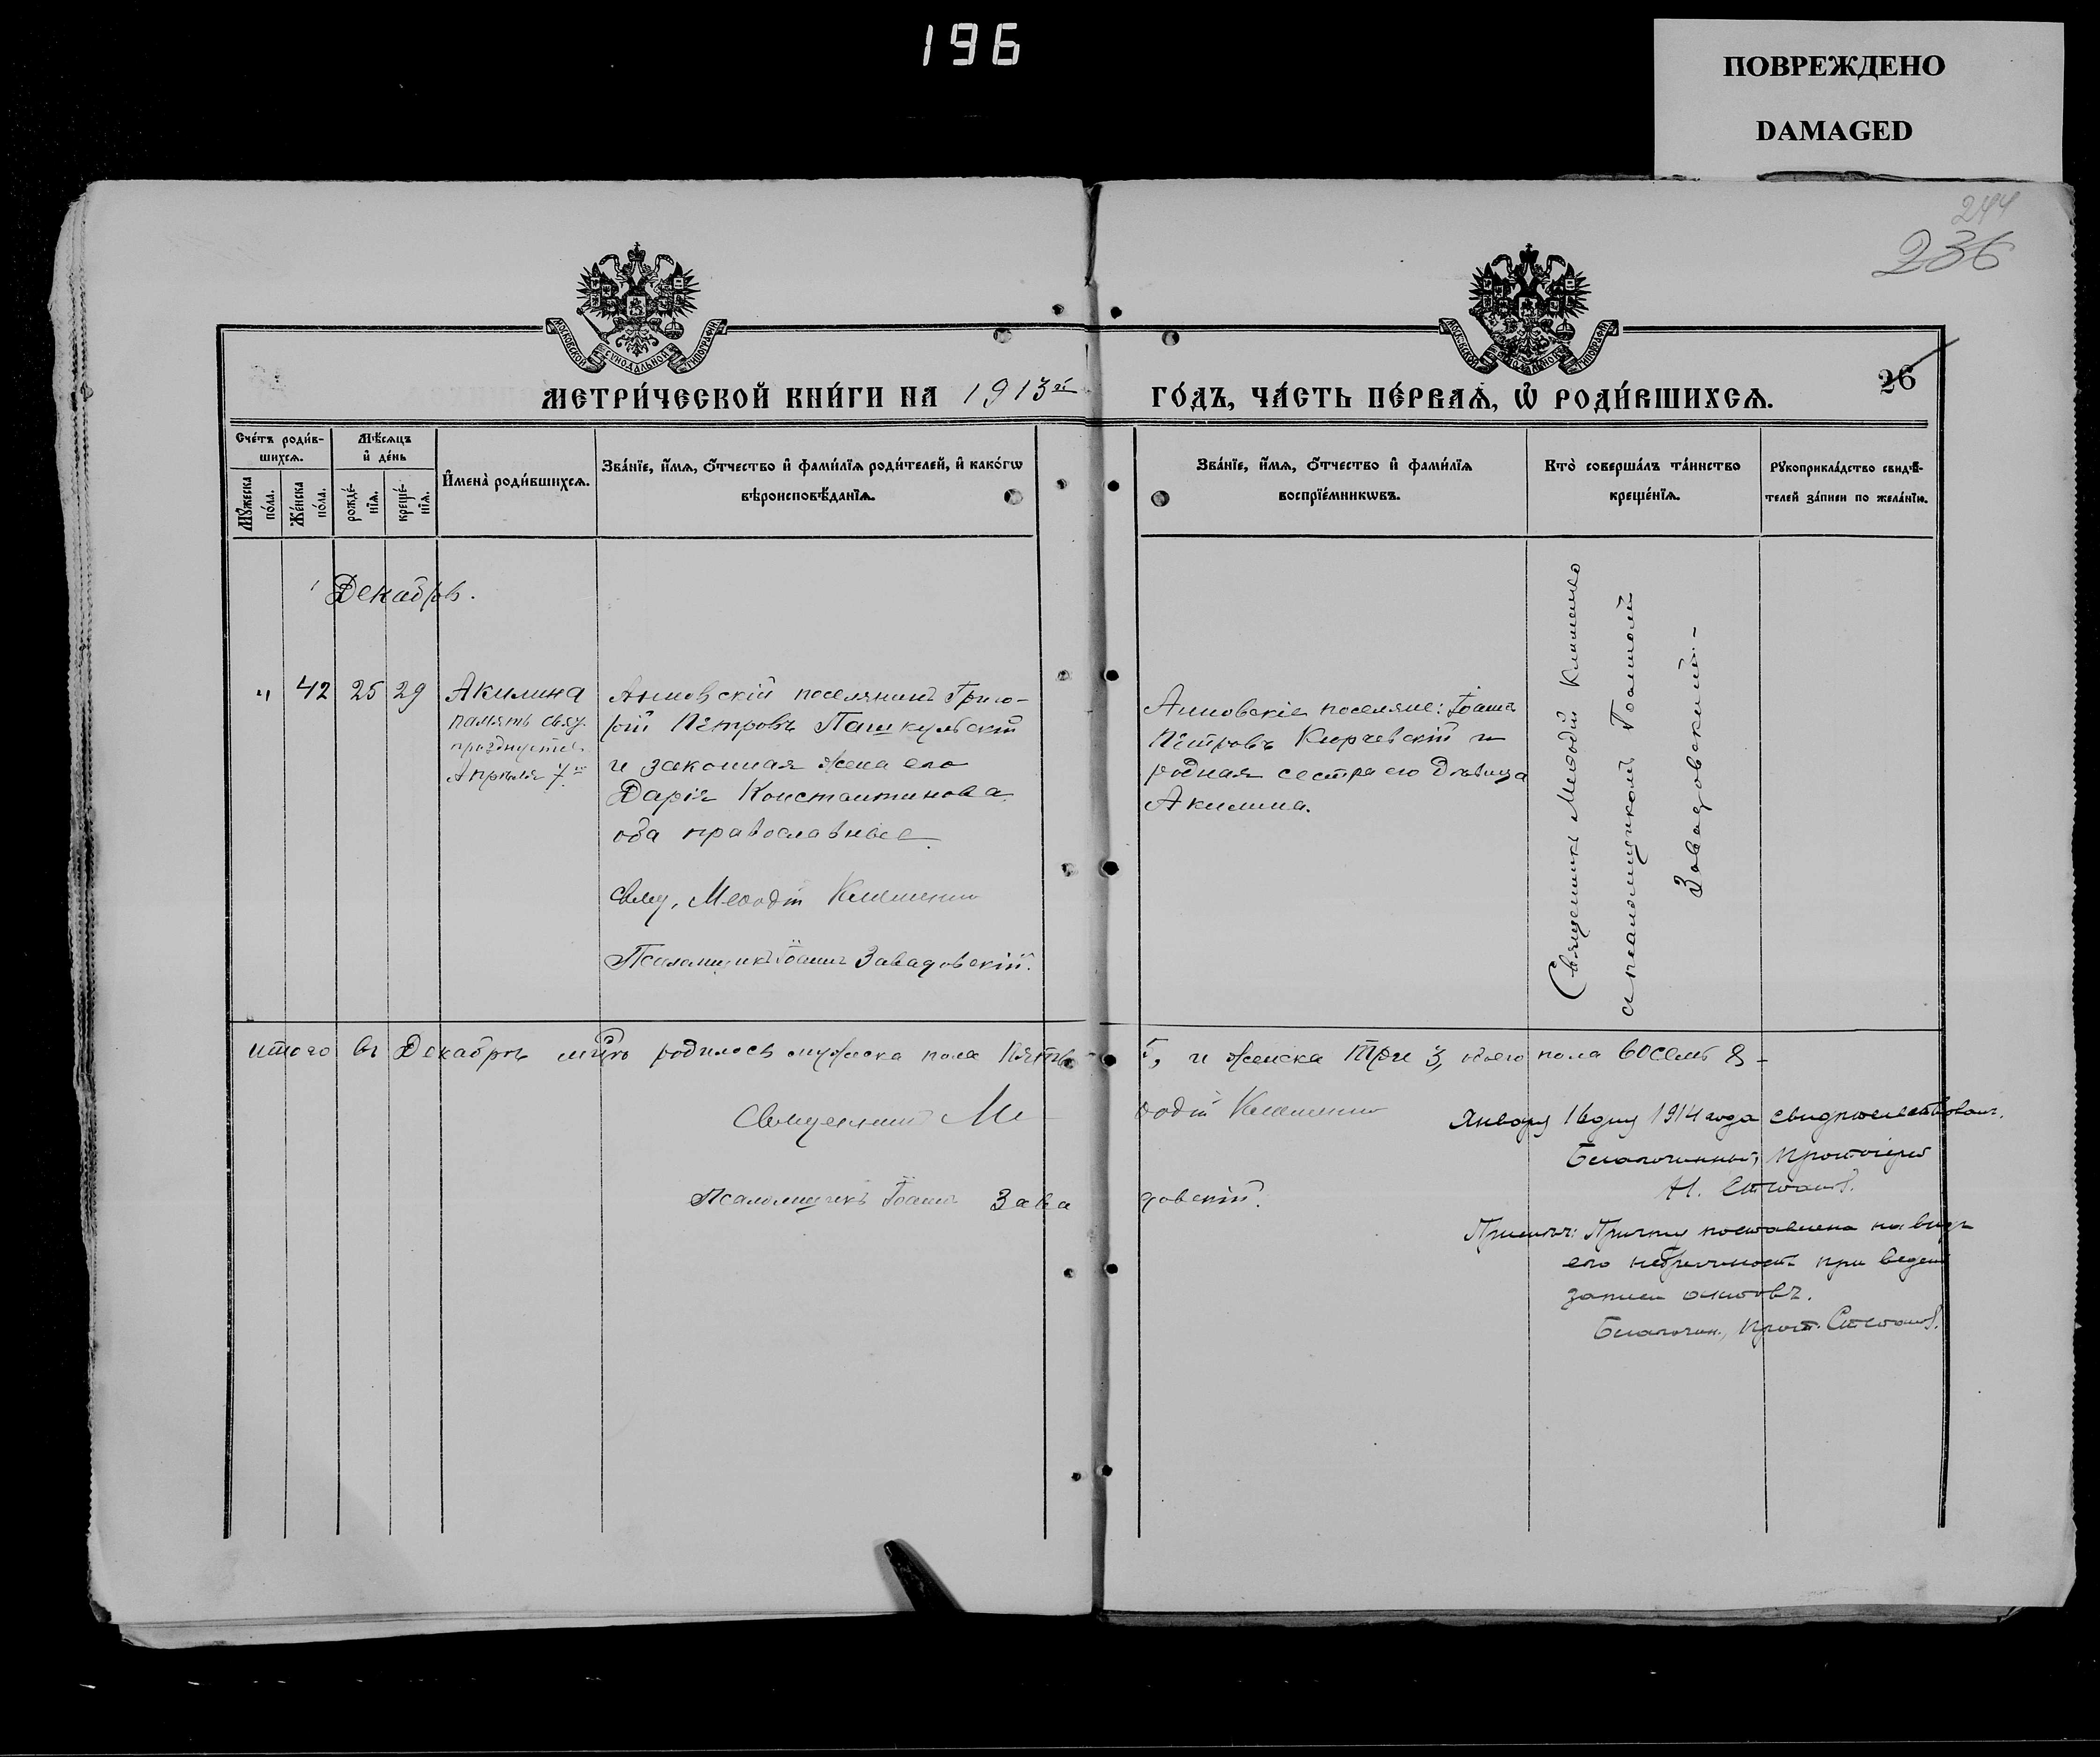 196
ПОВРЕЖДЕНО
DAMAGED
244
236
МОСКОВСКОЙ СѴНОДАЛЬНОЙ ТИПОГРАФІИ
МОСКОВСКОЙ СѴНОДАЛЬНОЙ ТИПОГРАФІИ
МЕТРИ́ЧЕСКОЙ КНИ́ГИ НА 1913й ГО́ДЪ, ЧА́СТЬ ПЕ́РВАѦ, Ѡ҆ РОДИ́ВШИХСѦ.
26
Сче́тъ роди́в-
шихсѧ.
Мѣ́сѧцъ
и҆ де́нь
Мꙋ́жеска по́ла.
Же́нска по́ла.
рожде́-нїѧ.
креще́-нїѧ.
И҆мена̀ роди́вшихсѧ.
Зва́нїе, и҆́мѧ, ѻ҆́тчество и҆ фами́лїѧ роди́телей, и҆ како́гѡ
вѣроисповѣ́данїѧ.
Зва́нїе, и҆́мѧ, ѻ҆́тчество и҆ фами́лїѧ
воспрїе́мникѡвъ.
Кто̀ соверша́лъ та́инство
креще́нїѧ.
Рꙋкоприкла́дство свидѣ́-
телей за́писи по жела́нїю.
Декабрь.
" 42 25 29 Акилина
память свящ.
празднуется
Апрѣля 7го
Анновскій поселянинъ Григо-
рій Петровъ Пашкульскій
и законная жена его
Дарія Константинова
оба православные.
Свящ. Меѳодій Клименко
Псаломщикъ Іоаннъ Завадовскій.
Анновскіе поселяне: Іоаннъ
Петровъ Кирчевскій и
родная сестра его дѣвица
Акилина.
Священникъ Меѳодій Клименко
съ псаломщикомъ Іоанномъ
Завадовскимъ.-
итого въ Декабрѣ мцѣ родилось мужска пола Пять 5, и женска три 3, обоего пола восемь 8 -
Священникъ Меѳодій Клименко
Псаломщикъ Іоаннъ Завадовскій.
Января 16 дня 1914 года свидѣтельствовалъ.
Благочинный, Протоіерей
Н. Стефановъ.
Примѣч: Причту поставлена на видъ
его небрежность при веденіи
записи актовъ.
Благочин., Прот. Стефановъ.